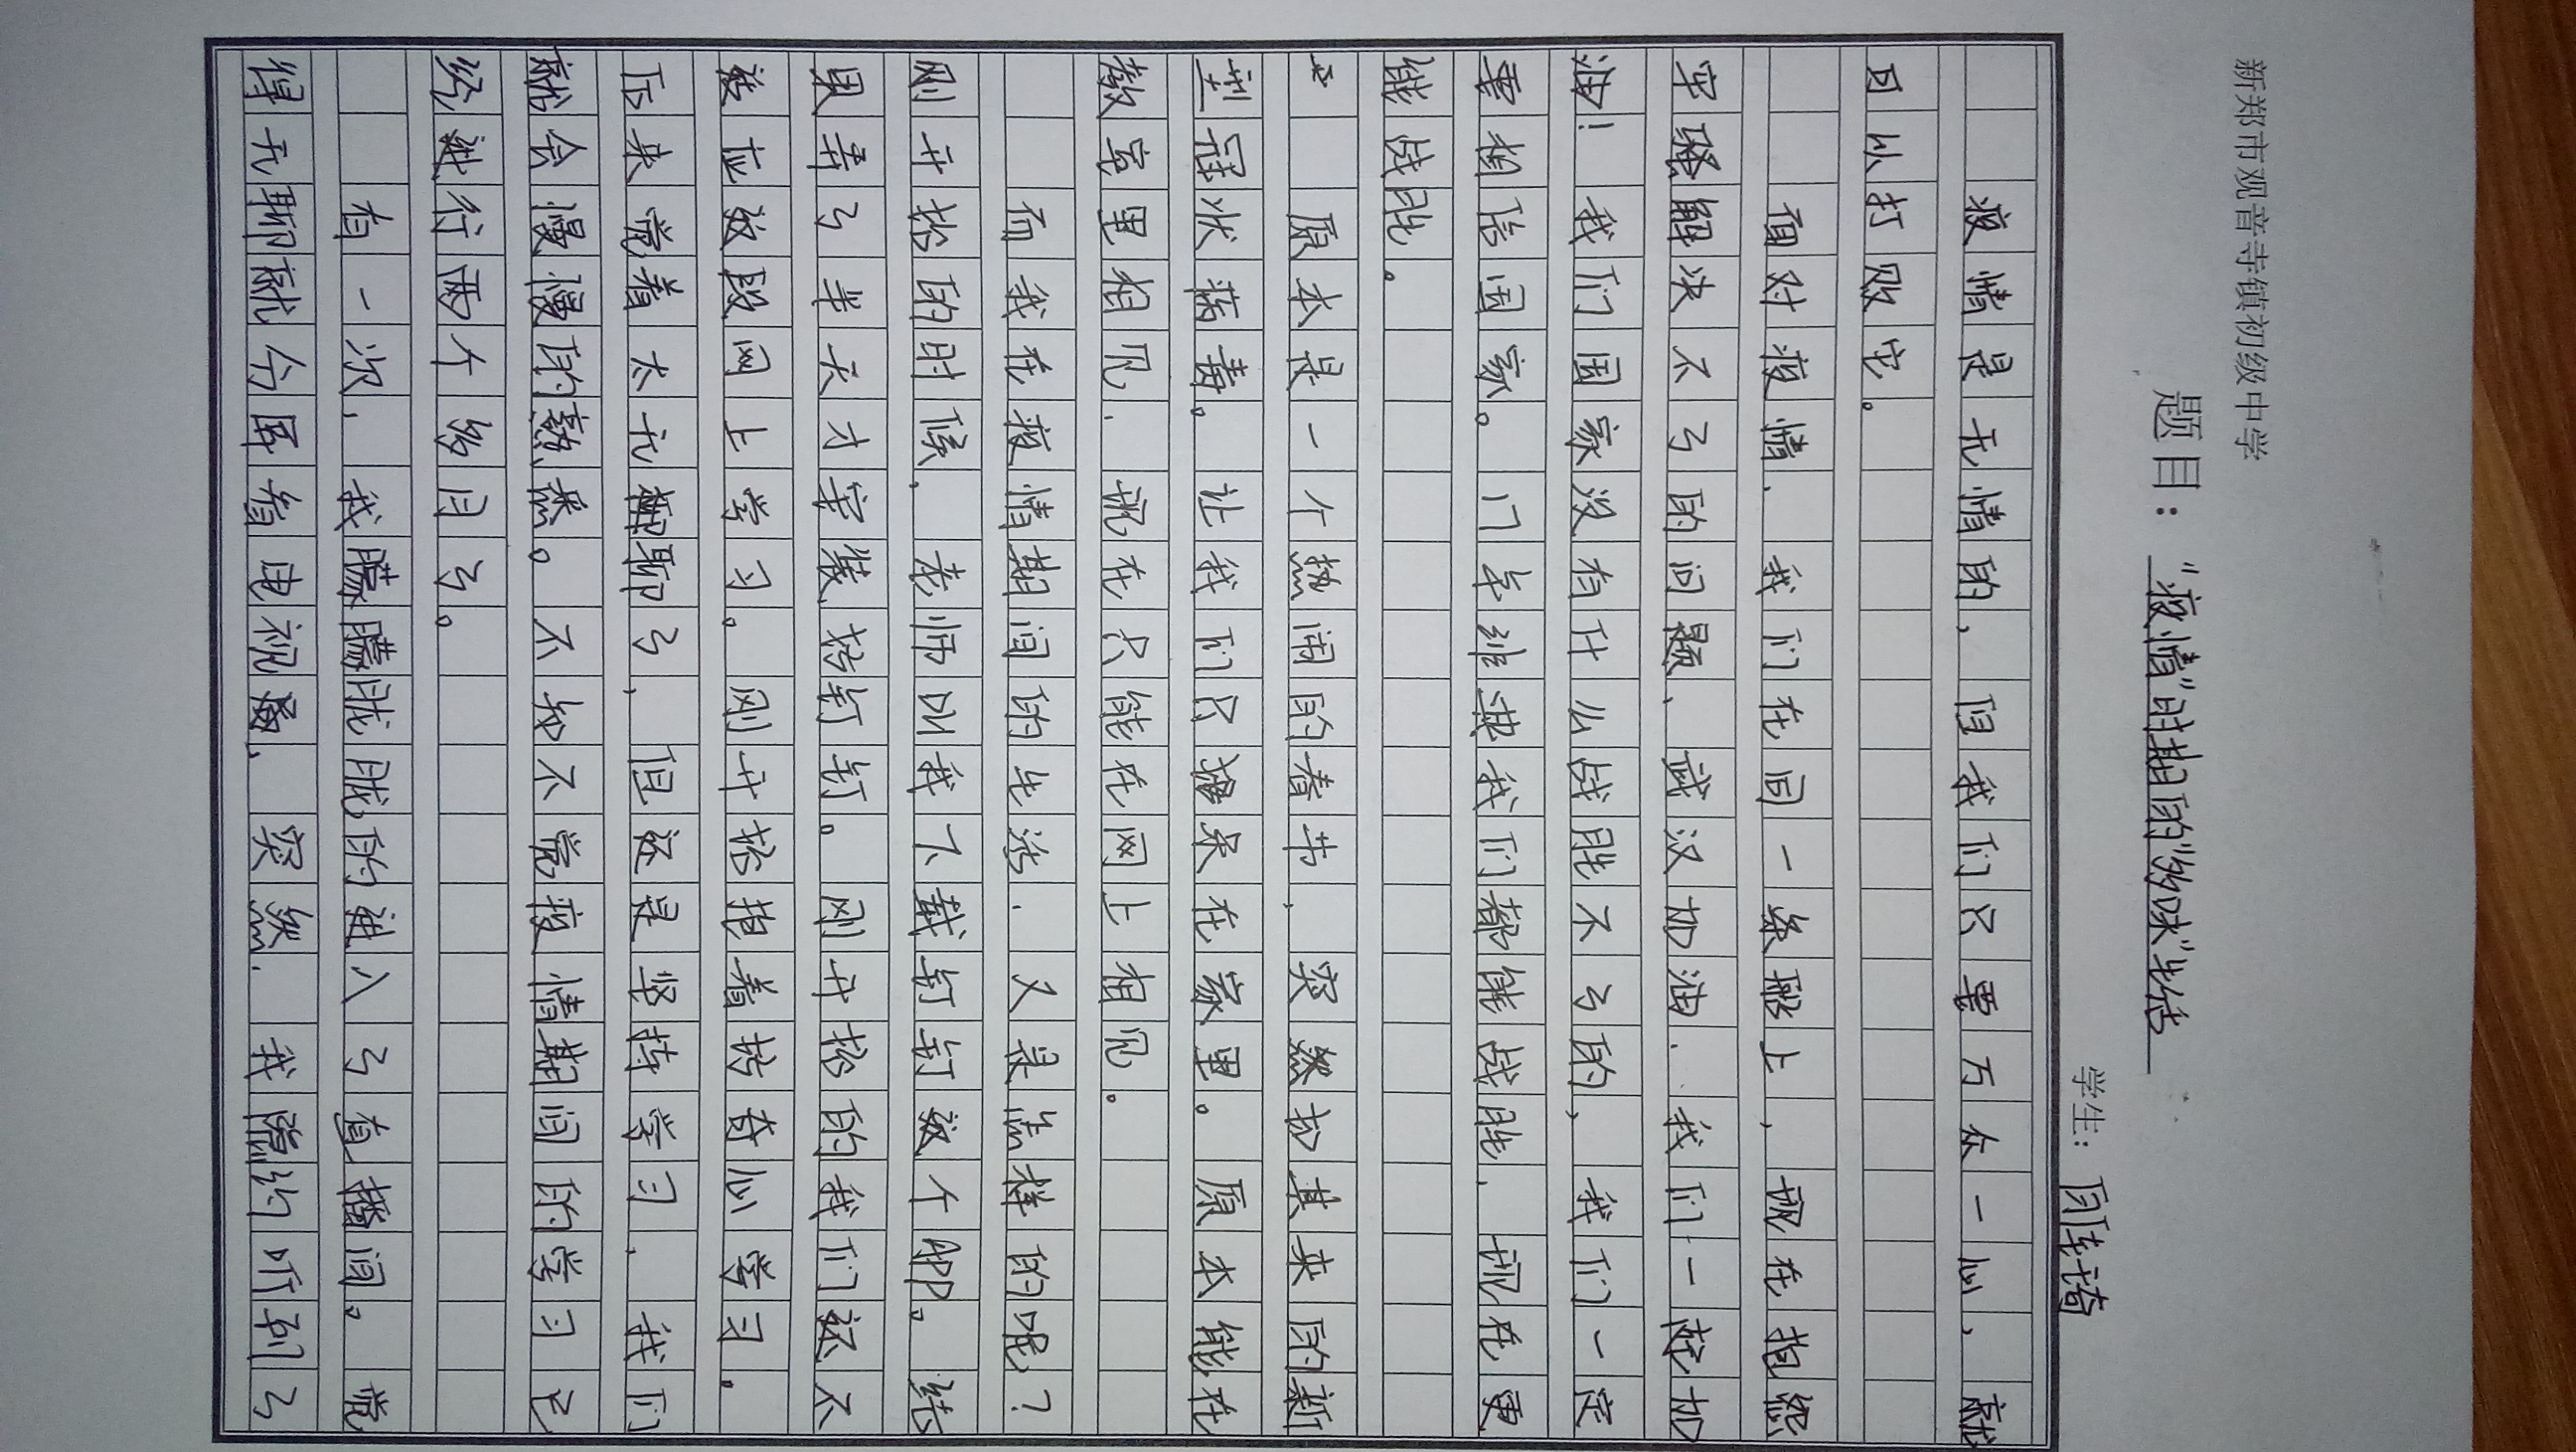 新郑市观音寺镇初级中学
题目："疫情"时期的"多味"生活
学生：
疫情是无情的，但我们只要万众一心，就
可以打败它。
面对疫情，我们在同一条船上，现在抱怨
牢骚解决不了的问题，武汉加油．我们一起加
油！我们国家没有什么战胜不了的，我们一定
要相信国家。门卡非典我们都能战胜，现在更
能战胜。
原本是一个热闹的春节，突然如其来的新
型冠状病毒。让我们只能呆在家里。原本能在
教室里相见．现在只能在网上相见。
而我在疫情期间的生活．又是怎样的呢？
刚开始的时候，老师叫我下载钉钉这个APP。结
果弄了半天才安装好钉钉。刚开始的我们还不
适应这段网上学习。刚开始抱着好奇心学习．
后来觉着太无聊了，但还是坚持学习，我们
就会慢慢的熟悉。不知不觉疫情期间的学习已
经进行两个多月了。
有一次，我朦朦胧胧的进入了直播间。觉
得无聊就今厨看电视剧，突然．我隐约听到了